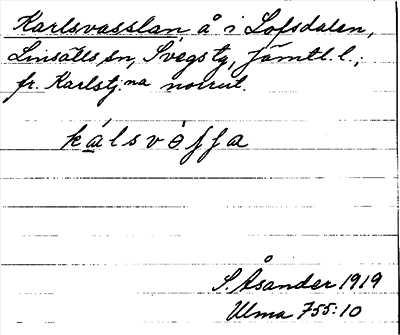 Karlsvasslan, å i Lofsdalen,
Linsälls sn, Svegs tg, Jämtl. l.;
fr. Karlstj:na norrut.
kálsvòffa
S. Åsander 1919
Ulma 755:10